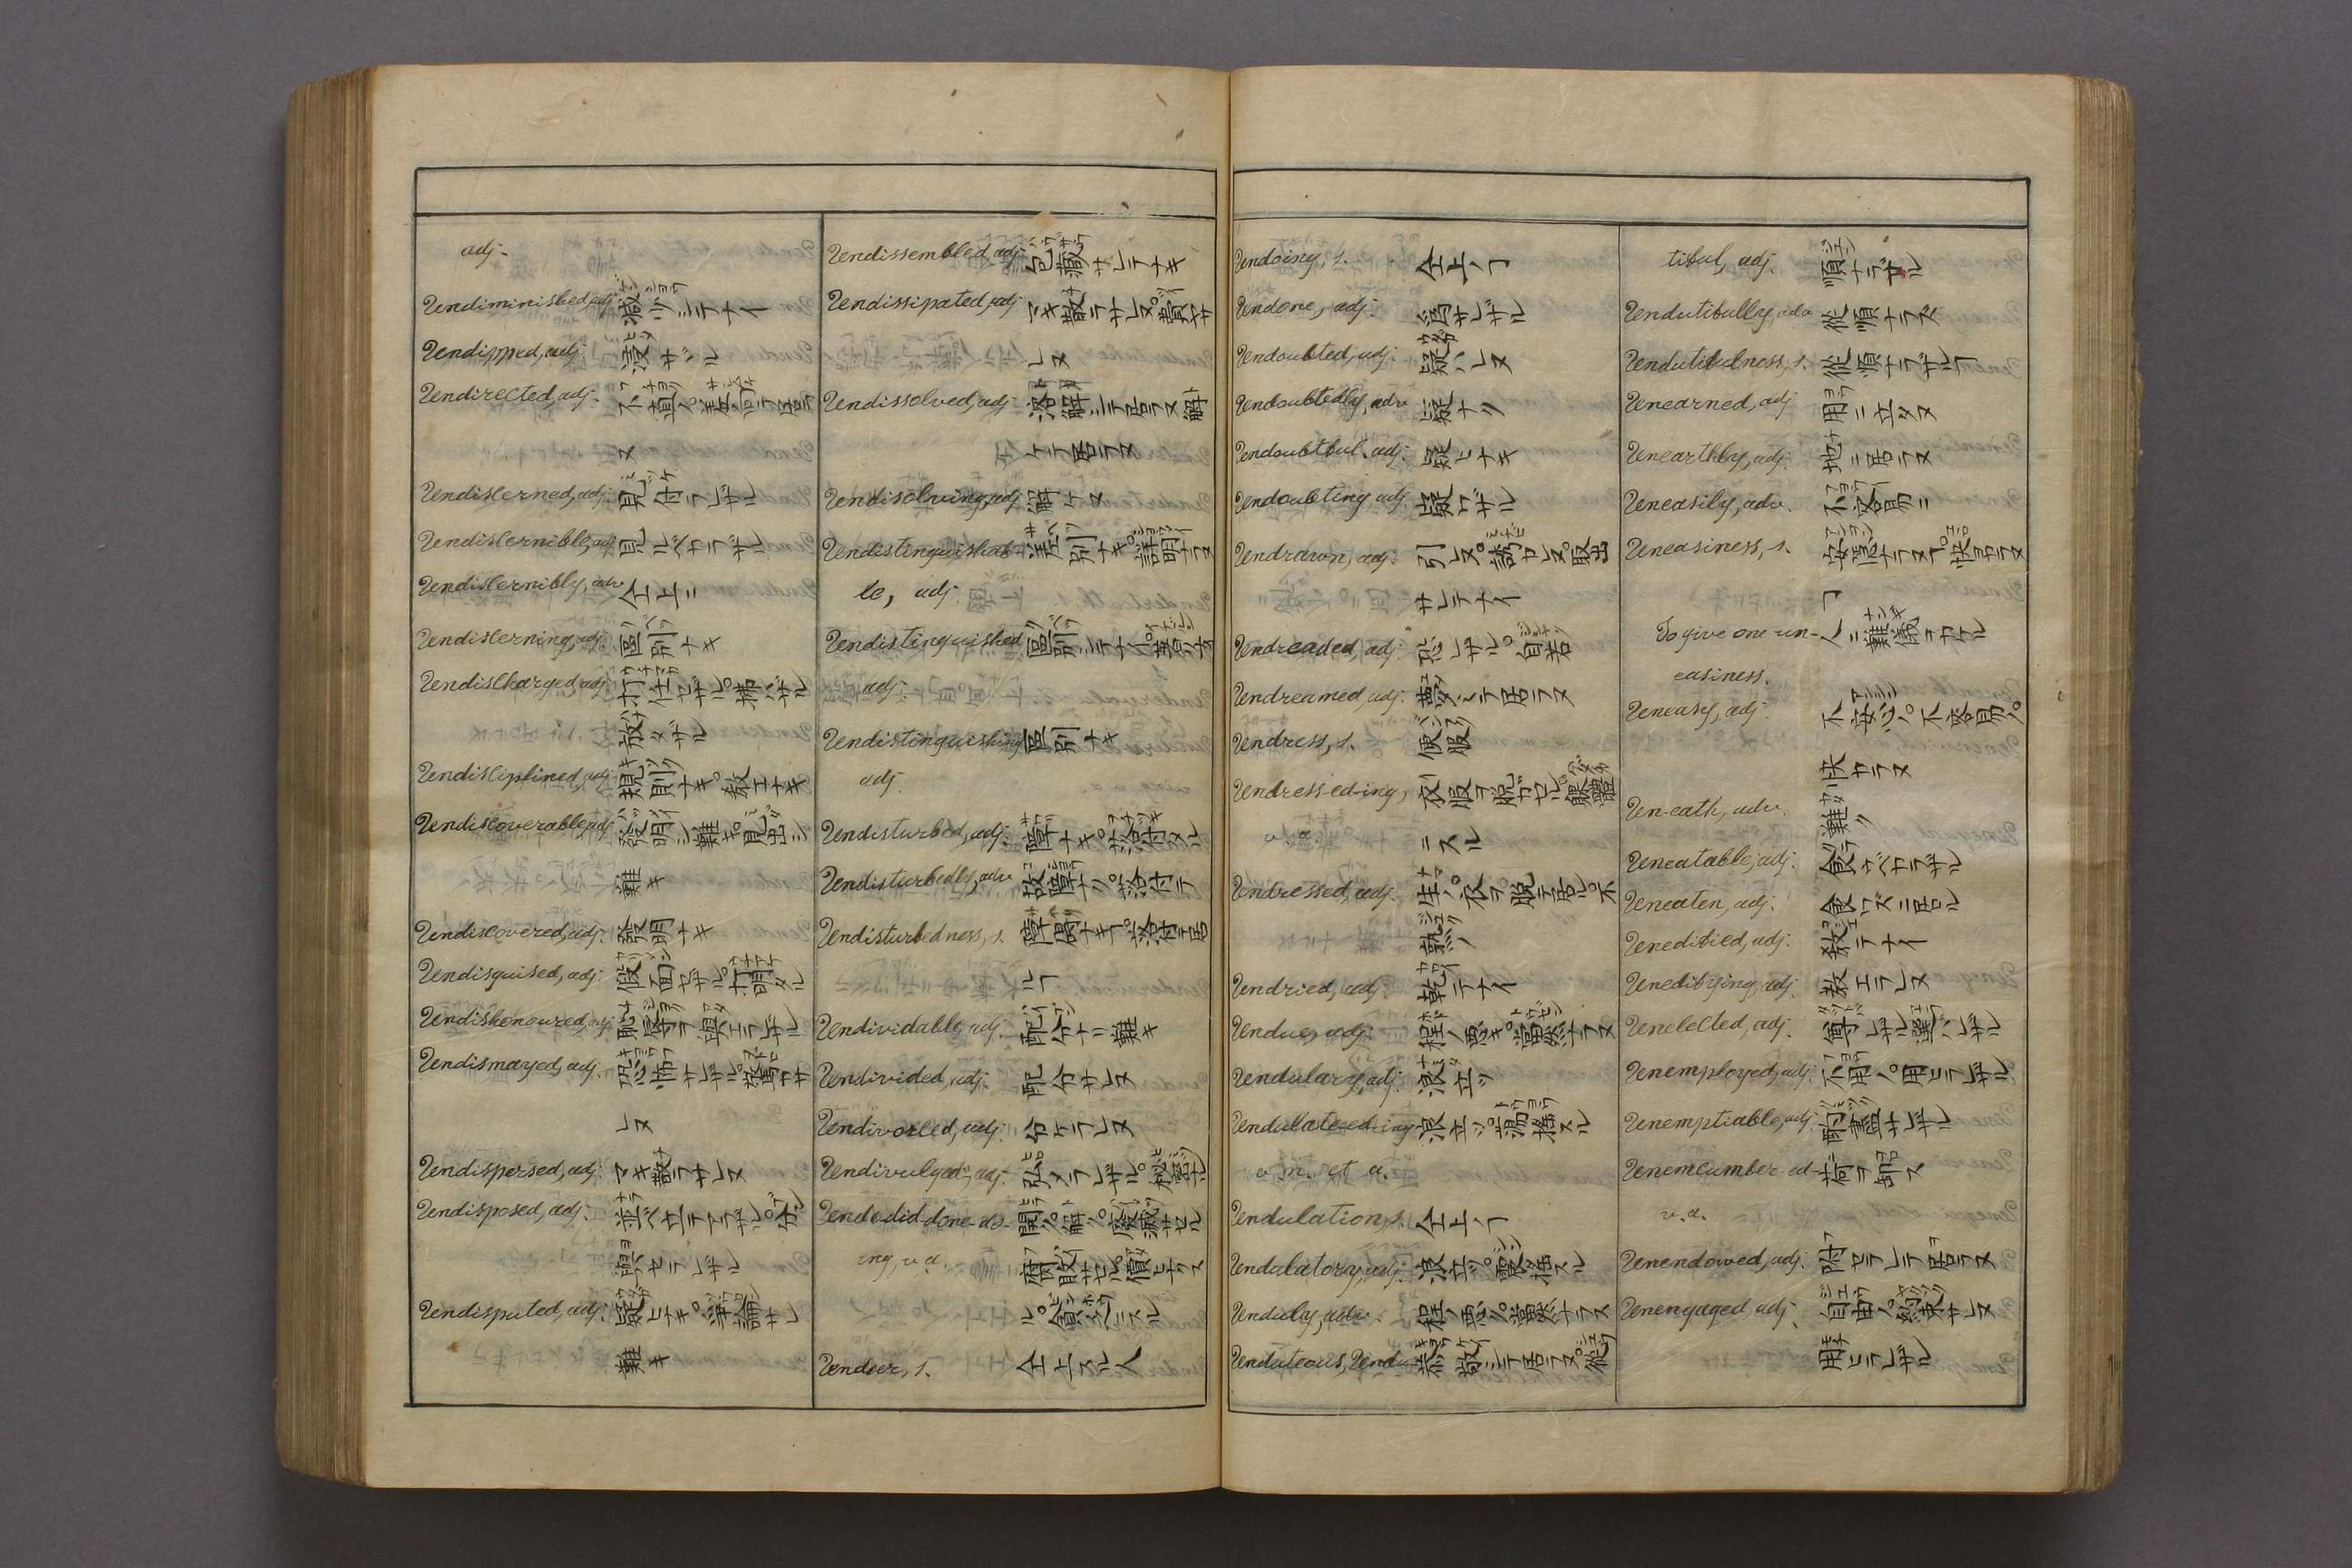 adj.
Undiminished, adj. 減少シテナイ
Undipped, adj. 浸サヾル
Undirected, adj. 不直ノ。差向テ居ラ
ヌ
Undiscerned, adj. 見付ラレザル
Undiscernible, adj. 見ルベカラザル
Undiscernibly, adv. 仝上ニ
Undiscerning, adj. 區別ナキ
Undischarged, adj. 打仕セザル。拂ハザル
放タザル
Undisciplined, adj. 規則ナキ。教エナキ
Undiscoverable, adj. 發明シ難キ。見出シ
難キ
Undiscovered, adj. 發明ナキ
Undisguised, adj. 假面セザル。打明タル
Undishonoured, adj. 恥辱ヲ與エラレザル
Undismayed, adj. 恐怖サレザル。驚カサ
レヌ
Undispersed, adj. マキ散ラサレヌ
Undisposed, adj. 並ベ立テラザル。分
與セラレザル
Undisputed, adj. 疑ヒナキ。爭論サレ
難キ
Undissembled, adj. 包藏サレテナキ
Undissipated, adj. マキ散ラサレヌ。費サ
レヌ
Undissolved, adj. 溶解シテ居ラヌ。解
ケテ居ラヌ
Undisolving, adj. 解ケヌ
Undistinguishab- 差別ナキ。證明ナラヌ
le, adj.
Undistinguished, 區別シテナイ。
adj.
Undistinguishing 區別ナキ
adj.
Undisturbed, adj. 障ナキ。落付タル
Undisturbedly, adv. 故障ナク。落付テ
Undisturbedness, s. 障礙ナキ。落付テ居
ルヿ
Undividable, adj. 配分ナリ難キ
Undivided, adj. 配分サレヌ
Undivorced, adj. 分ケラレヌ
Undivulged, adj. 弘メラレザル。秘密ナル
Undo-did-done-do- 開ク。解ク。廢滅サセル
ing, v.a. 腐敗サセル。償ヒナス
ル。貧乏ニスル
Undoer, s. 仝上スル人
Undoing, s. 仝上ノヿ
Undone, adj. 為サレザル
Undoubted, adj. 疑ハレヌ
Undoubtedly, adv 疑ナク
Undoubtful, adj. 疑ヒナキ
Undoubting, adj. 疑ワザル
Undrawn, adj. 引レヌ。誘ハレヌ。取出
サレテナイ
Undreaded, adj. 恐レザル。自若
Undreamed, adj. 夢ミテ居ラヌ
Undress, s. 便服
Undress-ed-ing, 衣服ヲ脱ガセル。躶體
v.a. ニスル
Undressed, adj. 生ノ。衣ヲ脱テ居ル。不
熟ノ
Undried, adj. 乾テナイ
Undue, adj. 程ノ悪キ。當然ナラヌ
Undulary, adj. 浪立ツ
Undulate-ed-ing 浪立ツ。蕩搖スル
v.n. et a.
Undulation, s. 仝上ノヿ
Undulatory, adj. 浪立ツ。震搖スル
Unduly, adv. 程ノ悪ク。當然ナラズ
Unduteous, Undu- 恭敬シテ居ラヌ。從
tiful, adj. 順ナラザル
Undutifully, adv 從順ナラズ
Undutifulness, s. 從順ナラザルヿ
Unearned, adj 用ニ立タヌ
Unearthly, adj. 地ニ居ラヌ
Uneasily, adv. 不容易ニ
Uneasiness, s. 安穏ナラヌヿ。快カラヌ
ヿ
To give one un- 人ニ難儀ヲカケル
easiness.
Uneasy, adj. 不安心ノ。不容易ノ。
快カラヌ
Un-eath, adv. 難ク
Uneatable, adj. 食フベカラザル
Uneaten, adj. 食ワズニ居ル
Unedified, adj. 教テナイ
Unedifying, adj. 教エラレヌ
Unelected, adj. 尊レザル。選バレザル
Unemployed, adj. 不用ノ。用ヒラレザル
Unemptiable, adj. 耐盡サレザル
Unemcumber-ed- 荷ヲ卸ス
v.a.
Unendowed, adj. 附セラレテ居ラヌ
Unengaged adj. 自由ノ。約束サレヌ
用ヒラレザル